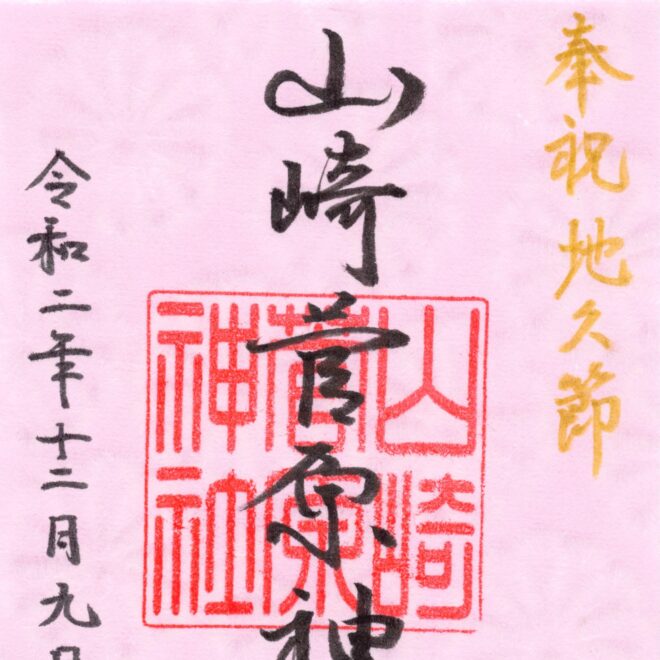 奉祝 地久節
山崎菅原神
山崎
菅原
神社
令和二年十二月九日